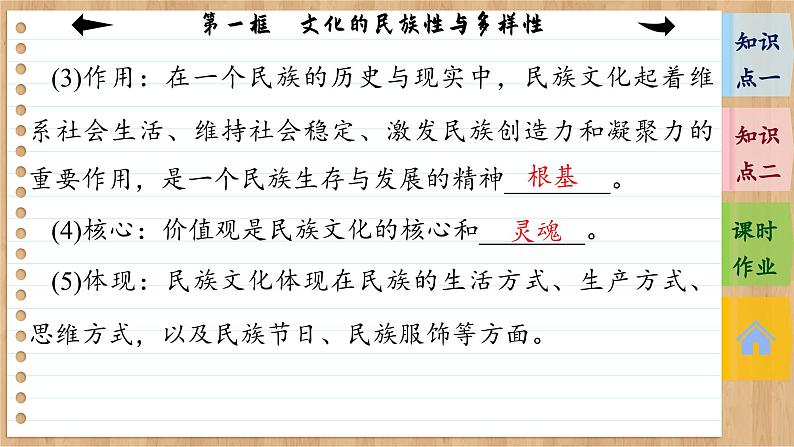 第一框 文化的民族性与多样性
(3)作用：在一个民族的历史与现实中，民族文化起着维
系社会生活、维持社会稳定、激发民族创造力和凝聚力的
重要作用，是一个民族生存与发展的精神根基。
(4)核心：价值观是民族文化的核心和灵魂。
(5)体现：民族文化体现在民族的生活方式、生产方式、
思维方式，以及民族节日、民族服饰等方面。
知识
点一
知识
点二
课时
作业